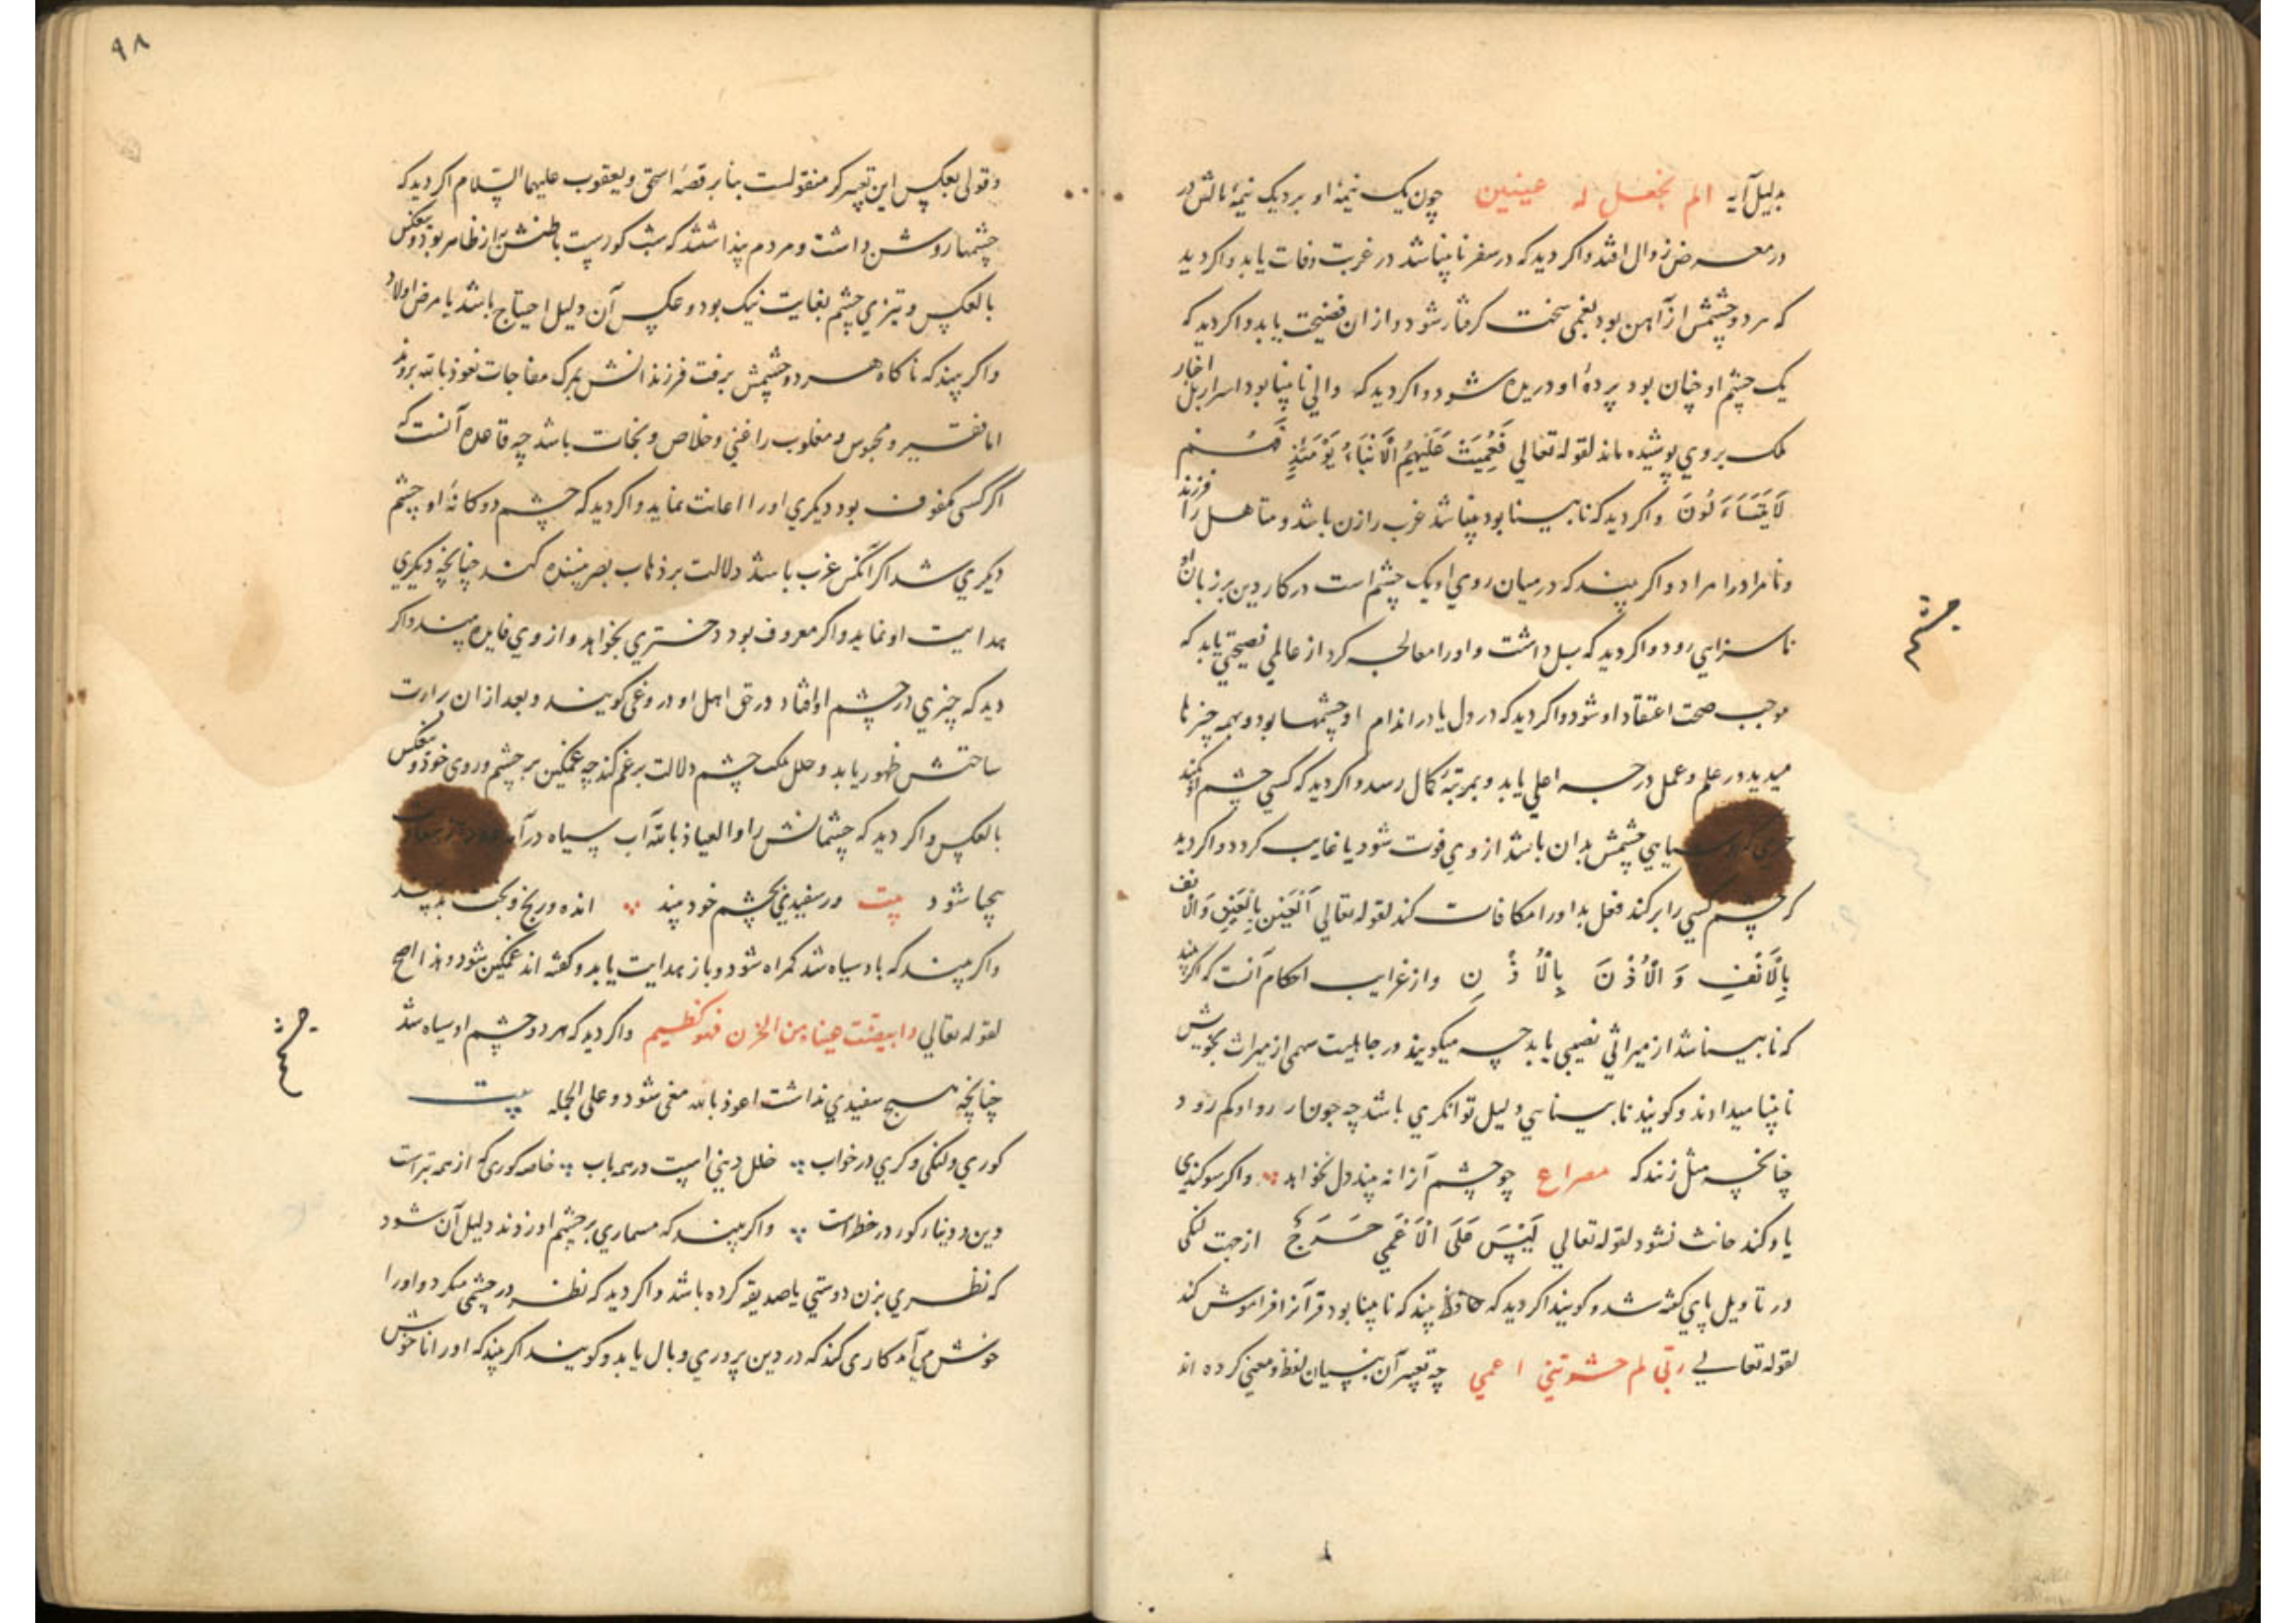 بدلیل آیه الم نجعل له عینین چون یک نیمهٔ او برد یک نیمهٔ مالش در
در معرض زوال افتد و اکر دید که در سفر نابینا شد در غربت وفات یابد و اکر دید
که هر دو چشمش از آهن بود بغمی سخت کرفتار شود و از ان فضیحت یابد و اکر دید که
یک چشم او چنان بود پردهٔ او دریده شود و اکر دید که والی نابینا بود اسرار اخبار اهل
ملک بروی پوشیده ماند لقوله تعالی فَعُمِیَتْ عَلَیْهِمُ الْاَنْبَاءُ یَوْمَئِذٍ فَهُمْ
لَا یَتَسَاءَلُونَ و اکر دید که نابینا بود بینا شد عزب را زن باشد و متاهل را فرزند
و نامراد را مراد و اکر بیند که در میان روی او یک چشم است در کار دین بر زبان او
ناسزایی رود و اکر دید که سبل داشت و او را معالجه کرد از عالمی نصیحتی یابد که
موجب صحت اعتقاد او شود و اکر دید که در دل یا در اندام او چشمها بود و بهمه چیزها
میدید در علم و عمل درجه اعلی یابد و بمرتبهٔ کمال رسد و اکر دید که کسی چشم او کند
چیزی که روشنایی چشمش بدان باشد از وی فوت شود یا غایب کردد و اکر دید
که چشم کسی را بر کند فعل بد او را مکافات کند لقوله تعالی اَلْعَیْنَ بِالْعَیْنِ وَالْاَنْف
بِالْاَنْفِ وَ الْاُذُنَ بِالْاُذُنِ و از غرایب احکام آنست که اکر بیند
که نابینا شد از میراثی نصیبی یابد چه میکویند در جاهلیت سهمی از میراث بخویش
نابینا میدادند و کویند نابینایی دلیل توانکری باشد چه چون او رود او کم رود
چنانچه مثل زنند که مصراع چو چشم آنرا نه بیند دل نخواهد و اکر سوکندی
یاد کند حانث نشود لقوله تعالی لَیْسَ عَلَی الْاَعْمَی حَرَجٌ از جهت لنکی
در تاویل پای کفته شد و کویند اکر دید که حافظ بیند که نابینا بود قرآنرا فراموش کند
لقوله تعالی ربّی لم حشرتنی اعمی چه تعبیر آن بنسیان لفظ و معنی کرده اند
چشم
۹۸
و قولی بعکس این تعبیر کر منقولست بنا بر قصهٔ اسحق و یعقوب علیهما السّلام اکر دید که
چشمها روشن داشت و مردم پنداشتند که شب کورست باطنش به از ظاهر بود و بعکس
بالعکس و تیزی چشم بغایت نیک بود و عکس آن دلیل احتیاج باشد یا مرض اولاد
و اکر بیند که ناکاه هر دو چشمش برفت فرزندانش بمرک مفاجات نعوذ بالله بروند
اما فقیر و محبوس و مغلوب را غنی و خلاص و نجات باشد چه قاعده آنست که
اکر کسی مکفوف بود دیکری او را اعانت نماید و اکر دید که چشم دوکانهٔ او چشم
دیکری شد اکر آنکس عزب باشد دلالت بر ذهاب بصر بیننده کند چنانچه دیکری
هدایت او نماید و اکر معروف بود دختری بخواهد و از وی فایده بیند و اکر
دید که چیزی در چشم او افتاد در حق اهل او دروغی کویند و بعد از ان برارت
ساحتش ظهور یابد و خلل یک چشم دلالت بر غم کند چه غمکین بر چشم و روی خود و بعکس
بالعکس و اکر دید که چشمانش را و العیاذ بالله آب سیاه در آید
بیجا شود بیت ور سفیدی بچشم خود بیند انده و رنج و
و اکر بیند که باد سیاه شد کمراه شود و باز هدایت یابد و کفته اند غمکین شود و هذا اصح
لقوله تعالی وابیضت عیناه من الحزن فهو کظیم و اکر دید که هر دو چشم او سیاه شد
چنانچه هیچ سفیدی نداشت اعوذ بالله مغمی شود و علی الجمله بیت
کوری و لنکی و کری در خواب خلل دینی است در همه باب خاصه کوری که از همه بترست
دین و دینار کور در خطرست و اکر بیند که مسماری بر چشم او زدند دلیل آن شود
که نظری بزن دوستی یا صدیقه کرده باشد و اکر دید که نظر در چشمی میکرد و او را
خوش می آمد کاری کند که در دین پروری وبال یابد و کویند اکر بیند که او را ناخوش
چشم